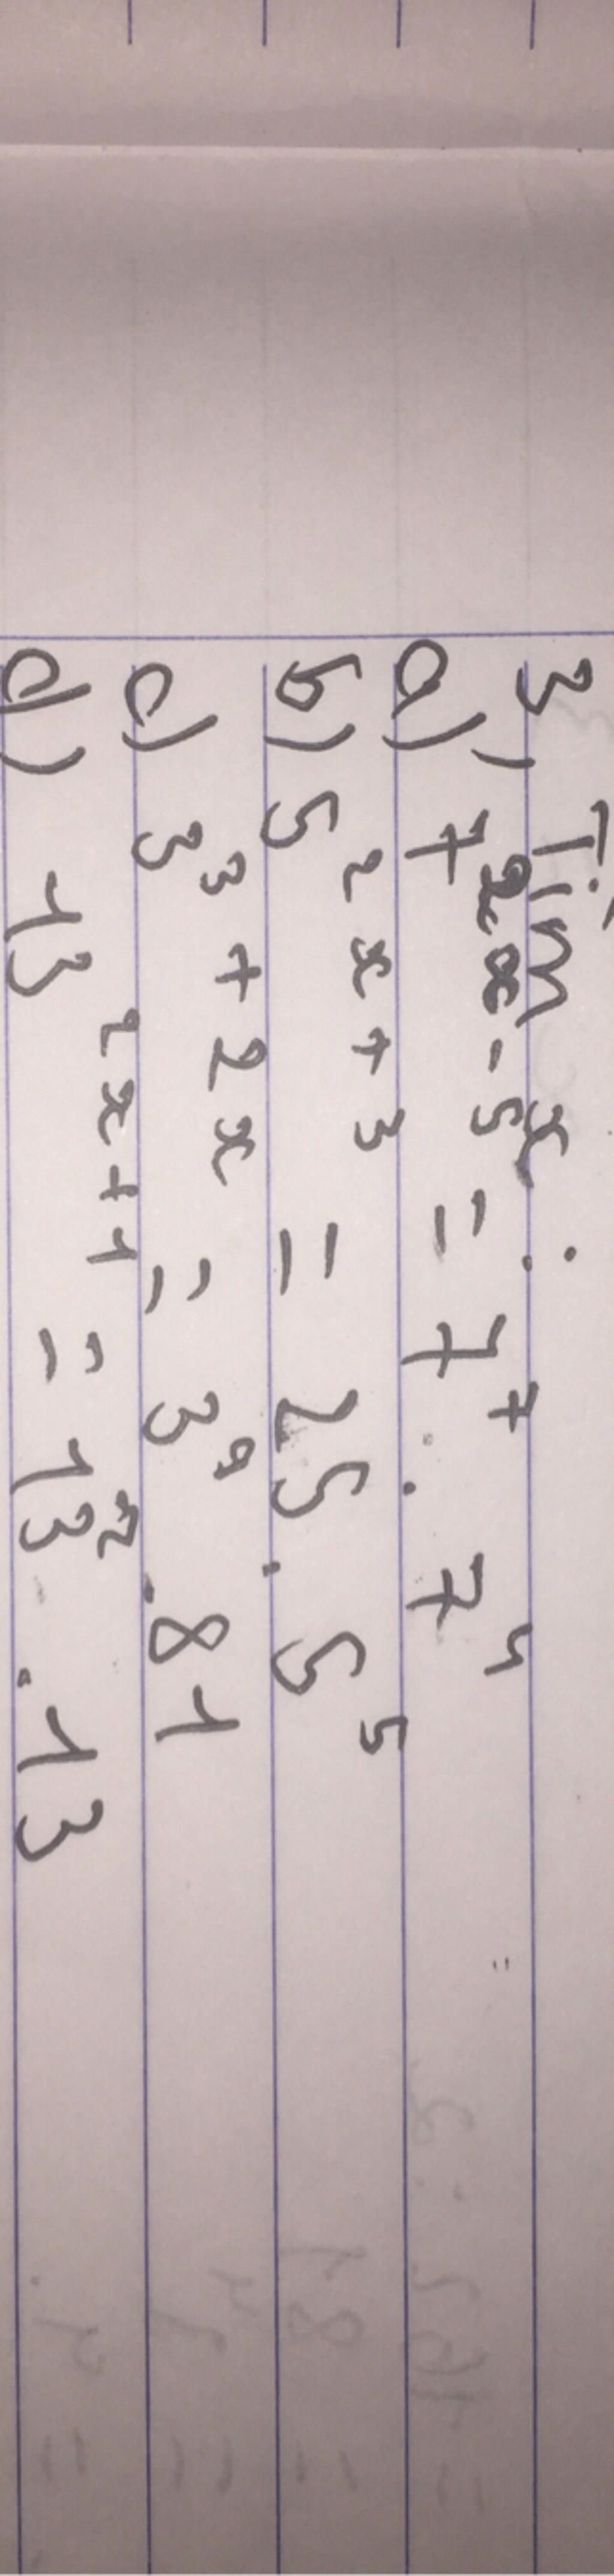 3) Tìm x:
a) 7^{2x-5} = 7^7 . 7^4
b) 5^{2x+3} = 25 . 5^5
c) 3^{3+2x} = 3^9 . 81
d) 13^{2x+1} = 13^2 . 13